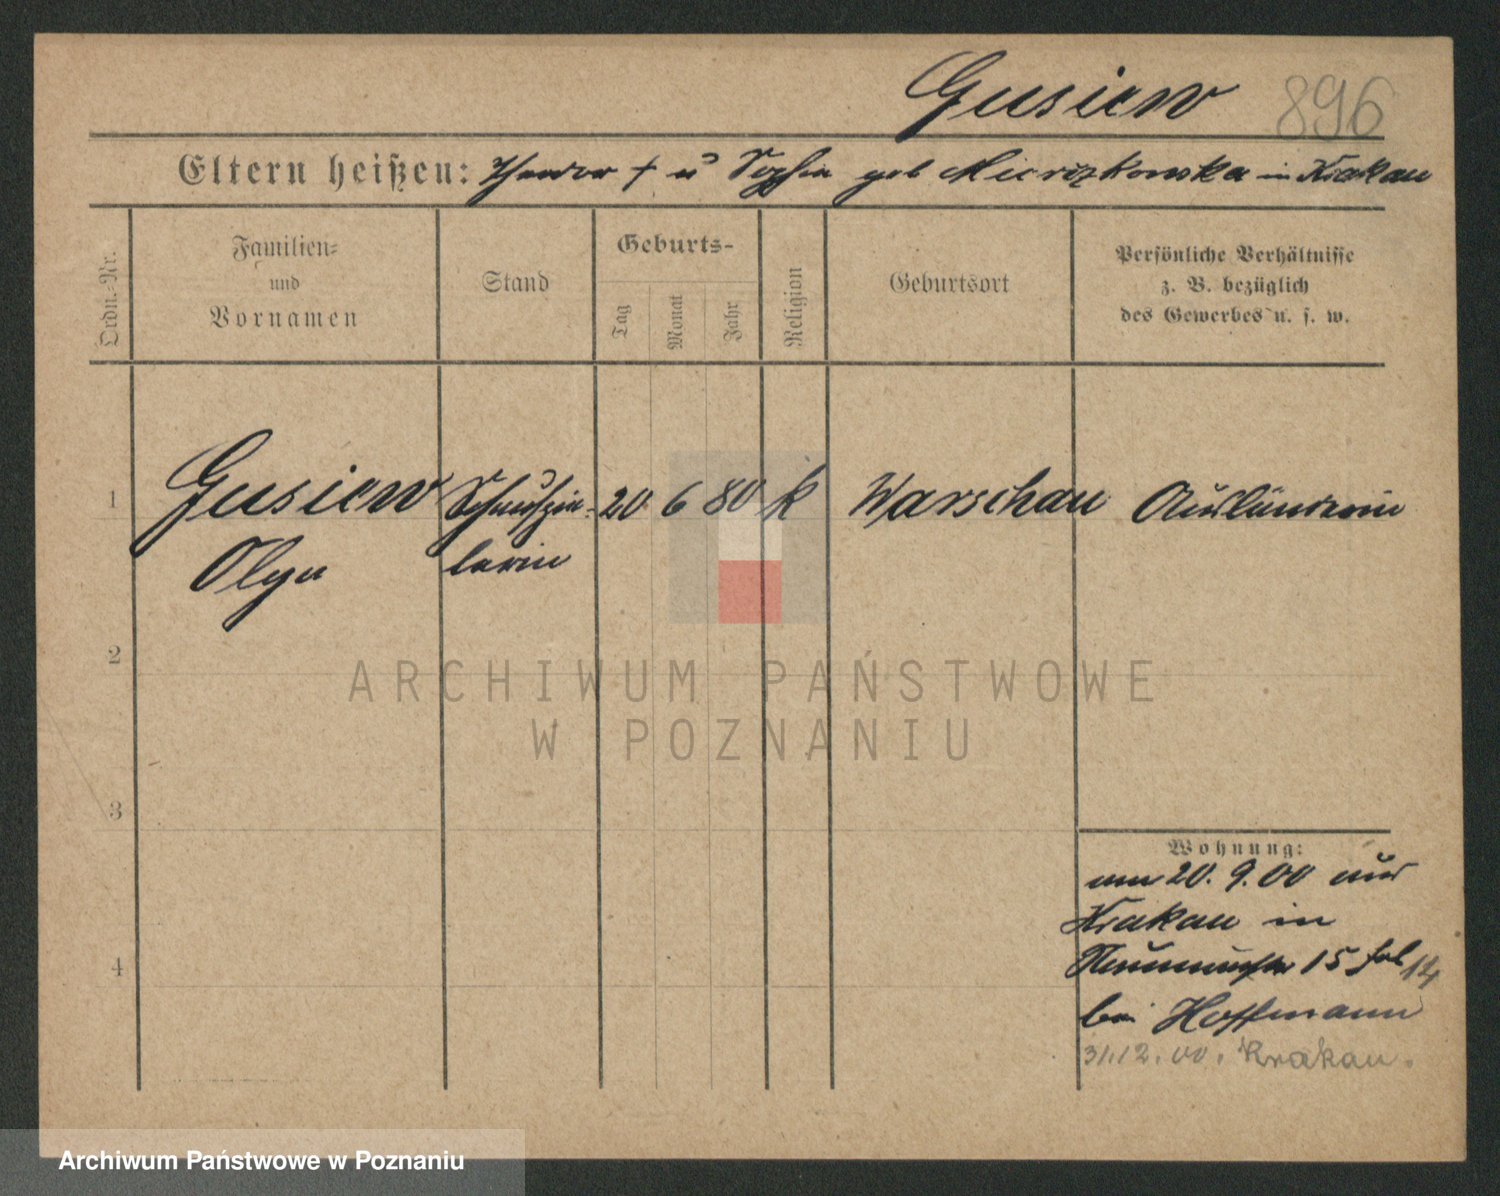 Gusiew 896
Eltern heißen: Theodor † u Sophia geb Mierczkowska in Krakau
Ordn.-Nr.
Familien-
und
Vornamen
Stand
Geburts-
Tag
Monat
Jahr
Religion
Geburtsort
Persönliche Verhältnisse
z. B. bezüglich
des Gewerbes u. s. w.
1 Gusiew Schauspie- 20 6 80 k Warschau Ausländerin
Olga lerin
2
3
4
Wohnung:
am 20. 9. 00 aus
Krakau in
15
bei Hoffmann
31.12.00. Krakau.
ARCHIWUM PAŃSTWOWE
W POZNANIU
Archiwum Państwowe w Poznaniu